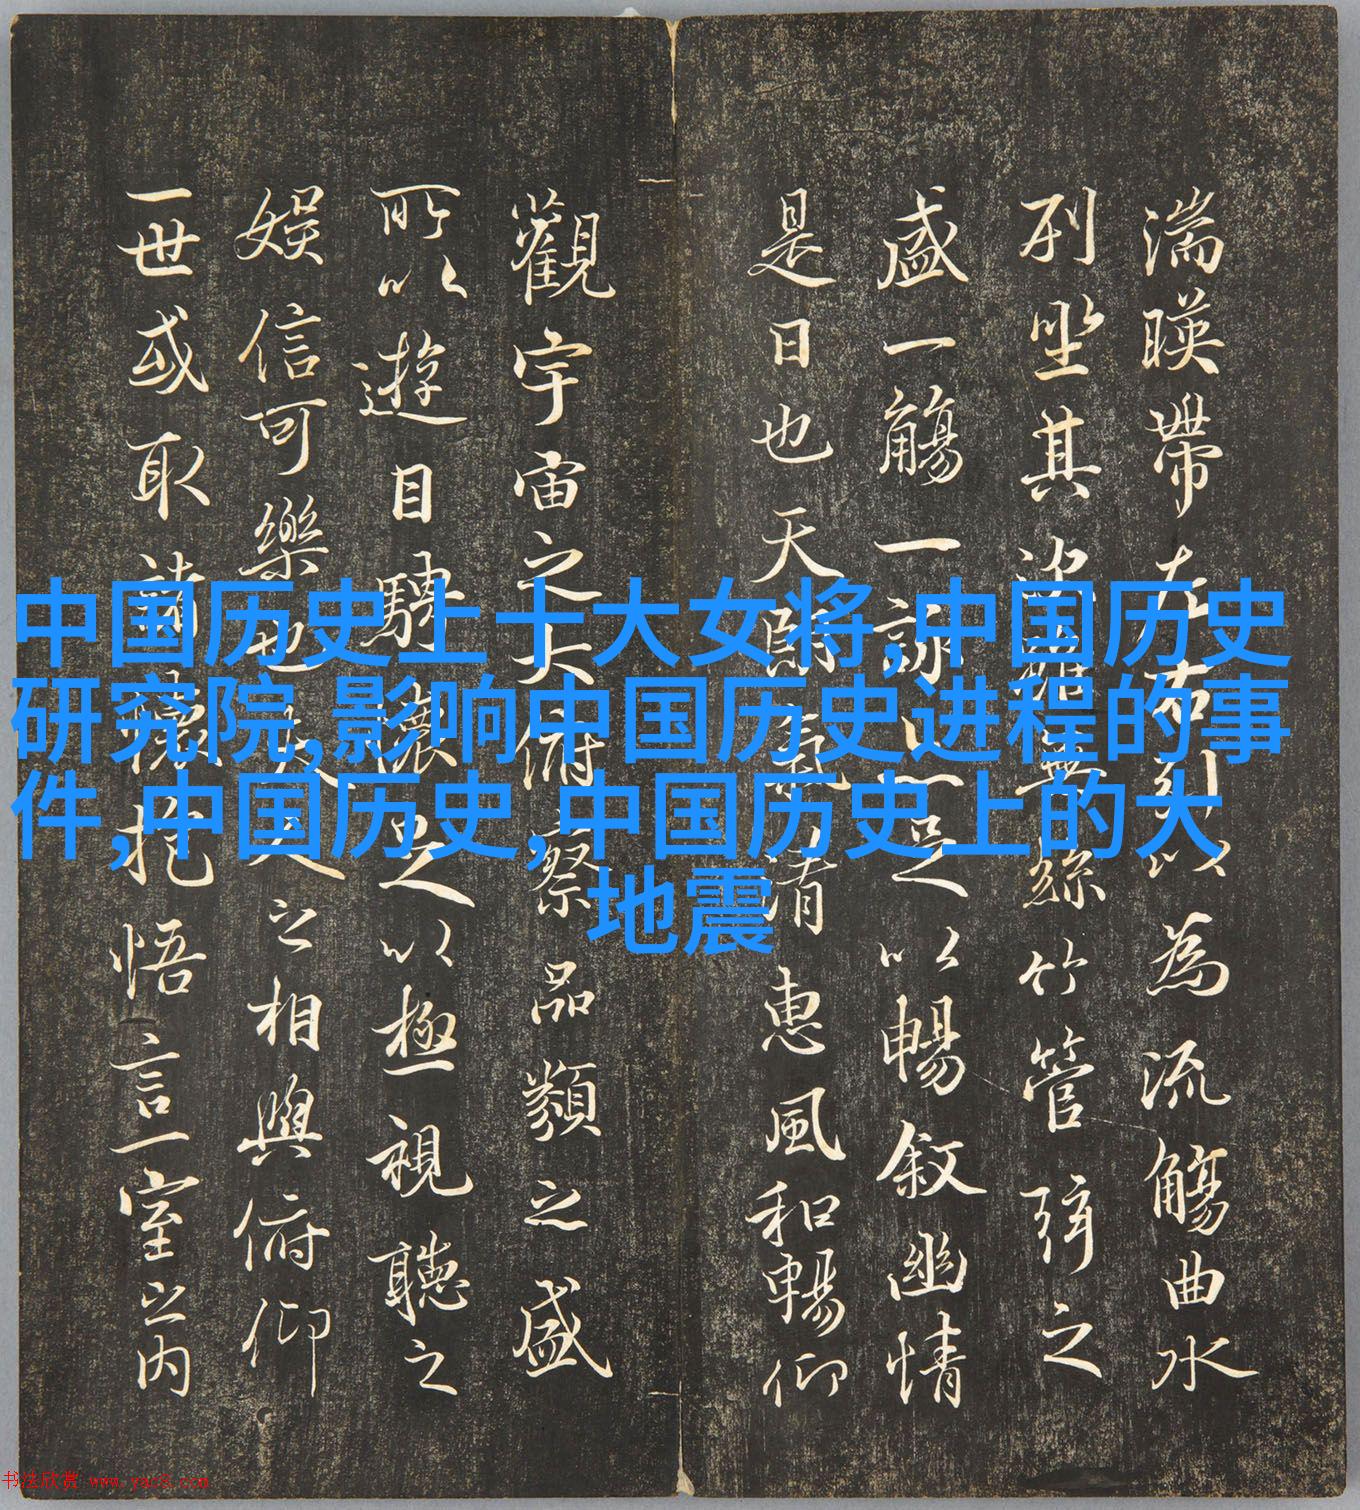 湍暎帶左右引以為流觴曲水
列坐其次雖無絲竹管弦之
盛一觴一詠亦足以暢敘幽情
是日也天朗氣清惠風和暢仰
觀宇宙之大俯察品類之盛
所以遊目騁懷足以極視聽之
娛信可樂也夫人之相與俯仰
一世或取諸懷抱悟言一室之內
中国历史上十大女将,中国历史
研究院,影响中国历史进程的事
件,中国历史,中国历史上的大
地震
书法欣赏 www.yac8.com